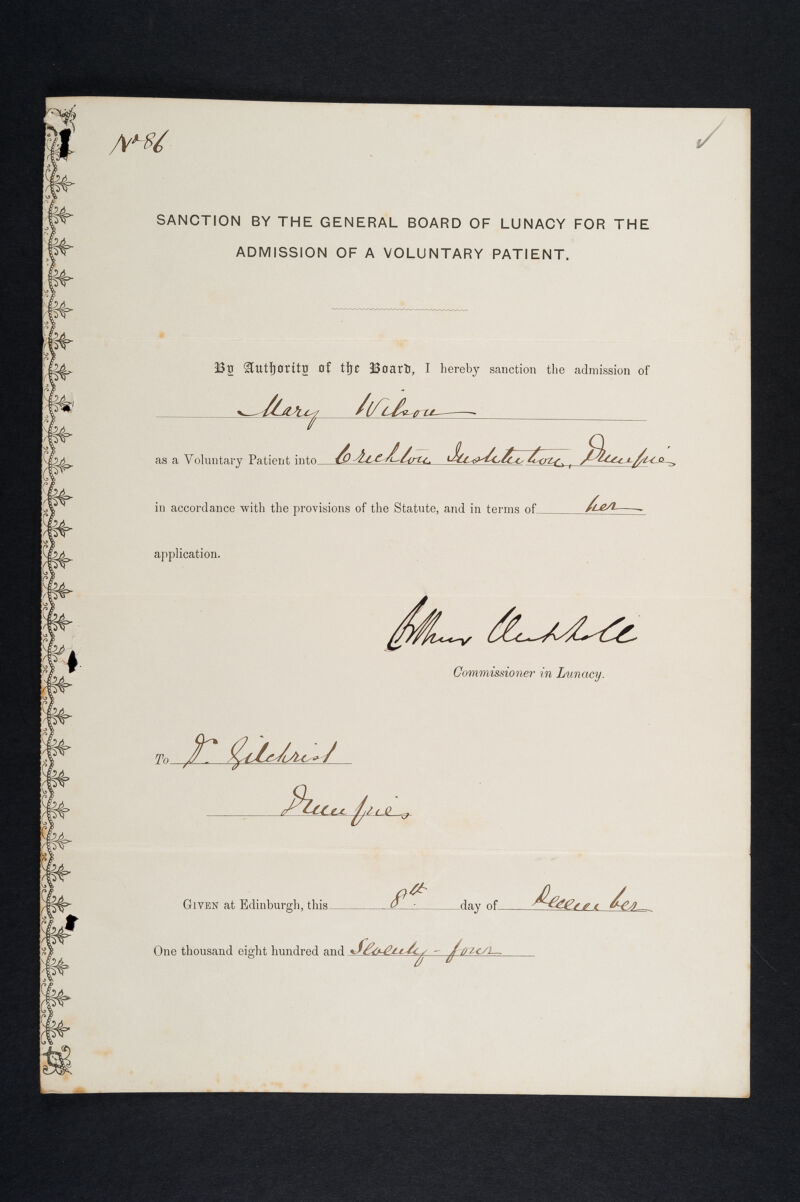 No 86
SANCTION BY THE GENERAL BOARD OF LUNACY FOR THE
ADMISSION OF A VOLUNTARY PATIENT.
By Authority of the Board, I hereby sanction the admission of
Mary Wilson
as a Voluntary Patient into Crichton Institution, Dumfries
in accordance with the provisions of the Statute, and in terms of her
application.
Arthur Mitchell
Commissioner in Lunacy.
To Dr. Gilchrist
Dumfries
GIVEN at Edinburgh, this 8th day of December
One thousand eight hundred and Seventy-four